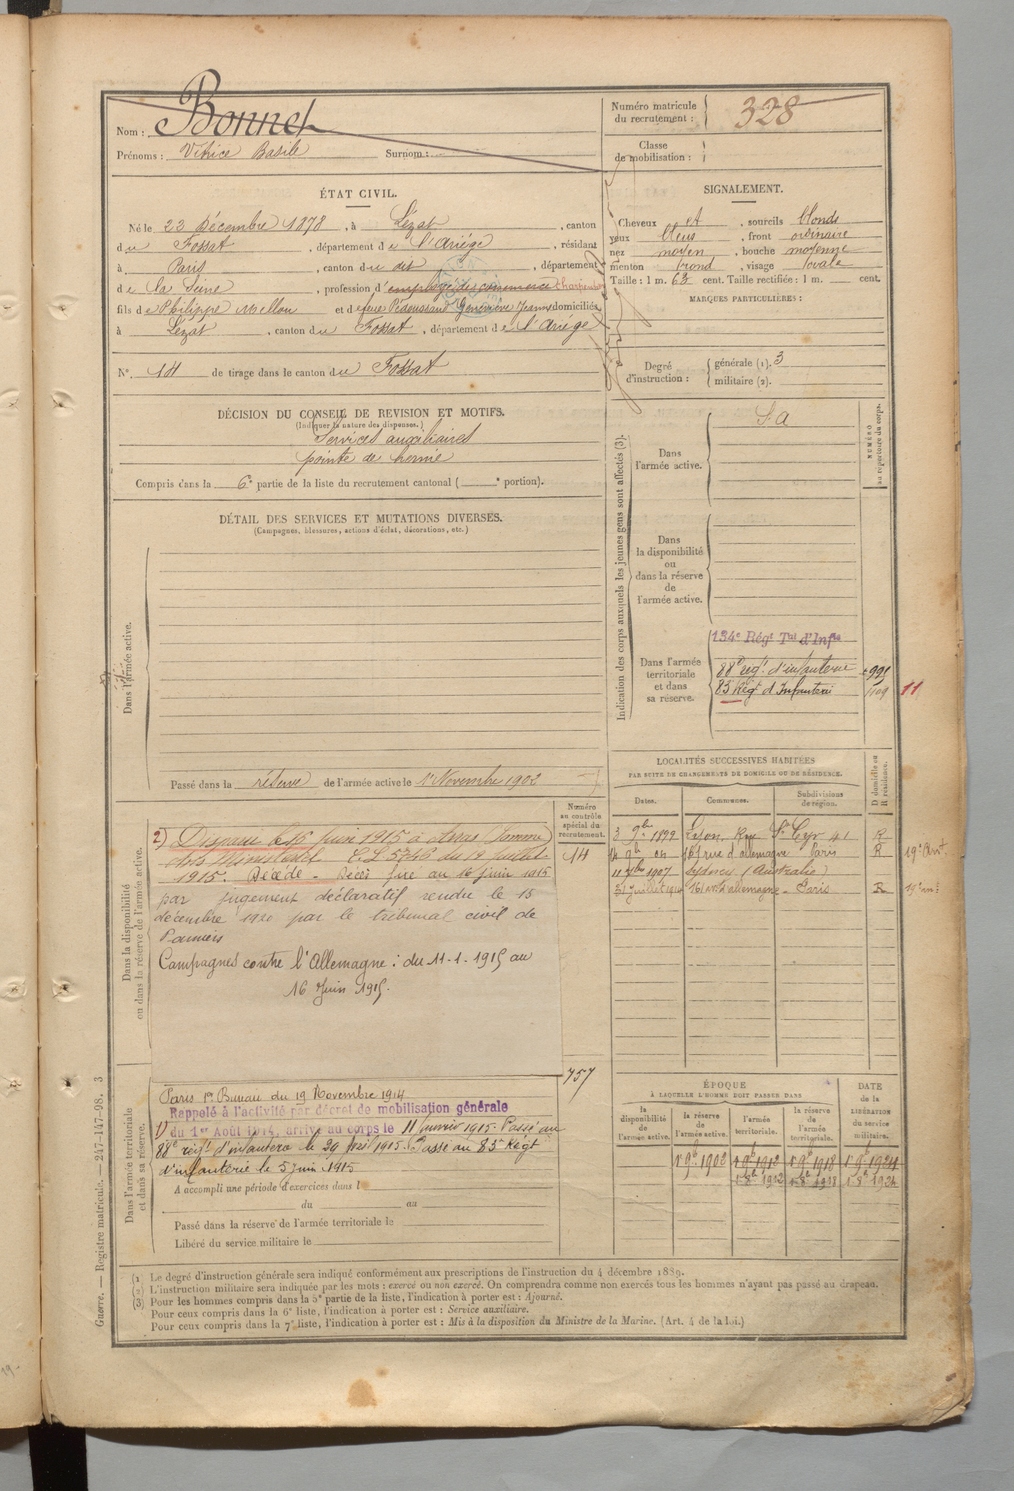 Nom : Bonnet
Prénoms : Basile Surnom :
Numéro matricule du recrutement : 328
Classe de mobilisation :
ÉTAT CIVIL.
Né le 23 Décembre 1878, à Lézat, canton
du Fossat, département de l'Ariége, résidant
à Paris, canton du dit, département
de la Seine, profession d'employé de commerce Charpentier
fils de Philippe et de Geneviève Jeanne domiciliés
à Lézat, canton du Fossat, département de l'Ariége
N° 14 de tirage dans le canton du Fossat
SIGNALEMENT.
Cheveux et, sourcils blonds
yeux bleus, front ordinaire
nez moyen, bouche moyenne
menton rond, visage ovale
Taille : 1 m. 63 cent. Taille rectifiée : 1 m. cent.
MARQUES PARTICULIÈRES :
Degré d'instruction : générale (1). 3
militaire (2).
DÉCISION DU CONSEIL DE REVISION ET MOTIFS.
(Indiquer la nature des dispenses.)
Services auxiliaires
pointe de hernie
Compris dans la 6e partie de la liste du recrutement cantonal ( e portion).
DÉTAIL DES SERVICES ET MUTATIONS DIVERSES.
(Campagnes, blessures, actions d'éclat, décorations, etc.)
Dans l'armée active.
Passé dans la réserve de l'armée active le 1er Novembre 1902
Numéro au contrôle spécial du recrutement.
14
Dans la disponibilité ou dans la réserve de l'armée active.
2) Disparu le 16 Juin 1915 à
avis Ministériel du 12 Juillet
1915. Décédé - Décès fixé au 16 juin 1915
par jugement déclaratif rendu le 15
décembre 1920 par le tribunal civil de
Pamiers
Campagnes contre l'Allemagne : du 11-1-1915 au
16 Juin 1915.
757
Dans l'armée territoriale et dans sa réserve.
Paris 1er Bureau du 19 Novembre 1914
Rappelé à l'activité par décret de mobilisation générale
1) du 1er Août 1914, arrivé au corps le 11 janvier 1915. Passé au
88e régt d'infanterie le 29 1915. Passé au 83e Régt
d'infanterie le 5 juin 1915
A accompli une période d'exercices dans l
du au
Passé dans la réserve de l'armée territoriale le
Libéré du service militaire le
Indication des corps auxquels les jeunes gens sont affectés (3).
NUMÉRO au répertoire du corps.
Dans l'armée active. S. A
Dans la disponibilité ou dans la réserve de l'armée active.
Dans l'armée territoriale et dans sa réserve.
134e Régt Tal d'Infie
88e régt d'infanterie
83 Régt d'Infanterie 1109 11
LOCALITÉS SUCCESSIVES HABITÉES
PAR SUITE DE CHANGEMENTS DE DOMICILE OU DE RÉSIDENCE.
Dates. Communes. Subdivisions de région. D domicile ou R résidence.
3 9bre 1899 Lyon Rue St Cyr 41 R
rue d'allemagne Paris R
1907 Sydney (Australie)
31 Juillet 161 allemagne - Paris R
ÉPOQUE
À LAQUELLE L'HOMME DOIT PASSER DANS
la disponibilité de l'armée active.
la réserve de l'armée active.
l'armée territoriale.
la réserve de l'armée territoriale.
DATE DE LA LIBÉRATION du service militaire.
1er 9bre 1902 1er 9bre 1912 1er 9bre 1918 1er 9bre 1924
Guerre. — Registre matricule. — 247-147-98. 3
(1) Le degré d'instruction générale sera indiqué conformément aux prescriptions de l'instruction du 4 décembre 1889.
(2) L'instruction militaire sera indiquée par les mots : exercé ou non exercé. On comprendra comme non exercés tous les hommes n'ayant pas passé au drapeau.
(3) Pour les hommes compris dans la 5e partie de la liste, l'indication à porter est : Ajourné.
Pour ceux compris dans la 6e liste, l'indication à porter est : Service auxiliaire.
Pour ceux compris dans la 7e liste, l'indication à porter est : Mis à la disposition du Ministre de la Marine. (Art. 4 de la loi.)